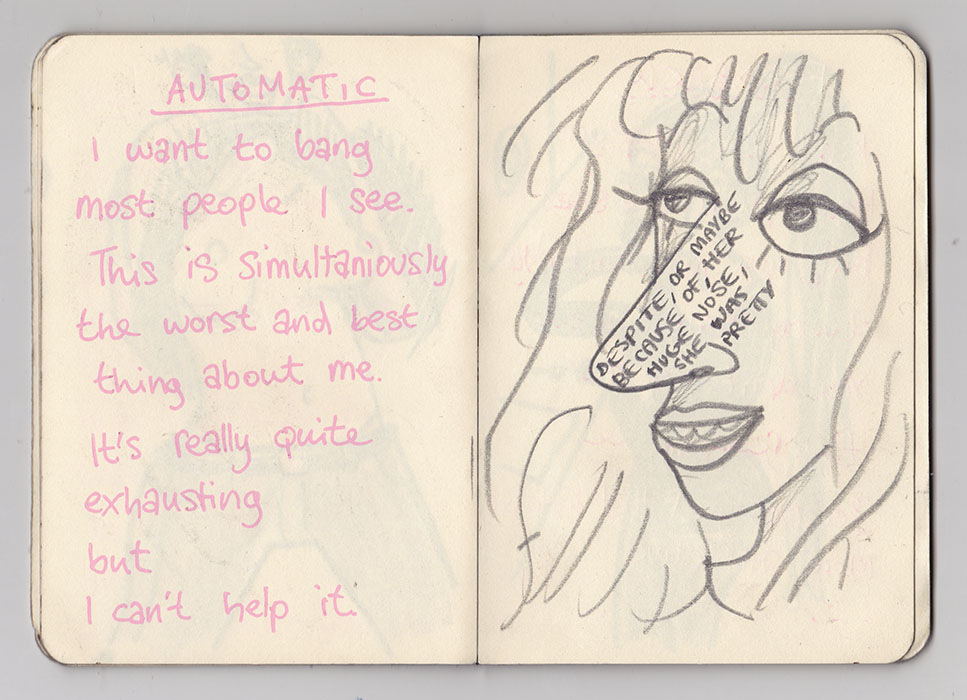 AUTOMATIC
I want to bang
most people I see.
This is simultaniously
the worst and best
thing about me.
It's really quite
exhausting
but
I can't help it.
DESPITE, OR MAYBE
BECAUSE OF, HER
HUGE NOSE,
SHE WAS
PRETTY